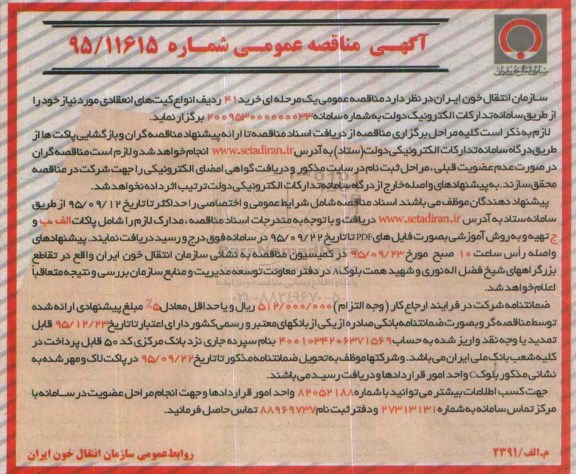 آگهی مناقصه عمومی شماره ۹۵/۱۱۶۱۵
سازمان انتقال خون ایران
سازمان انتقال خون ایران در نظر دارد مناقصه عمومی یک مرحله ای خرید ۴۱ ردیف انواع کیت‌های انعقادی مورد نیاز خود را
از طریق سامانه تدارکات الکترونیک دولت به شماره سامانه ۲۰۰۹۵۳۰۰۰۰۰۰۰۳۳ برگزار نماید.
لازم به ذکر است کلیه مراحل برگزاری مناقصه از دریافت اسناد مناقصه تا ارائه پیشنهاد مناقصه گران و بازگشایی پاکت ها از
طریق درگاه سامانه تدارکات الکترونیکی دولت (ستاد) به آدرس www.setadiran.ir انجام خواهد شد و لازم است مناقصه گران
در صورت عدم عضویت قبلی، مراحل ثبت نام در سایت مذکور و دریافت گواهی امضای الکترونیکی را جهت شرکت در مناقصه
محقق سازند. به پیشنهادهای واصله خارج از درگاه سامانه تدارکات الکترونیکی دولت ترتیب اثر داده نخواهد شد.
پیشنهاد دهندگان موظف می باشند اسناد مناقصه شامل شرایط عمومی و اختصاصی را حداکثر تا تاریخ ۹۵/۰۹/۱۲ از طریق
سامانه ستاد به آدرس www.setadiran.ir دریافت و با توجه به مندرجات اسناد مناقصه، مدارک لازم را شامل پاکات الف، ب و
ج تهیه و به روش آموزشی بصورت فایل های PDF تا تاریخ ۹۵/۰۹/۲۲ در سامانه فوق درج و رسید دریافت نمایند. پیشنهادهای
واصله رأس ساعت ۱۰ صبح مورخ ۹۵/۰۹/۲۳ در کمیسیون مناقصه به نشانی سازمان انتقال خون ایران واقع در تقاطع
بزرگراههای شیخ فضل اله نوری و شهید همت بلوک A در دفتر معاونت توسعه مدیریت و منابع سازمان بررسی و نتیجه متعاقباً
اعلام خواهد شد.
ضمانتنامه شرکت در فرایند ارجاع کار (وجه التزام) ۵۱۲/۰۰۰/۰۰۰ ریال و یا حداقل معادل ۵٪ مبلغ پیشنهادی ارائه شده
توسط مناقصه گر و بصورت ضمانتنامه بانکی صادره از یکی از بانکهای معتبر و رسمی کشور دارای اعتبار تا تاریخ ۹۵/۱۲/۲۳ قابل
تمدید یا وجه نقد واریز شده به حساب ۴۰۰۱۰۳۴۲۰۶۳۷۱۵۶۹ بنام سپرده جاری نزد بانک مرکزی کد ۵۰ قابل پرداخت در
کلیه شعب بانک ملی ایران می باشد. و شرکتها موظف به تحویل ضمانتنامه مذکور تا تاریخ ۹۵/۰۹/۲۲ در پاکت لاک و مهر شده به
نشانی مذکور بلوک C واحد امور قراردادها و دریافت رسید می باشند.
جهت کسب اطلاعات بیشتر می توانید با شماره ۸۲۰۵۲۱۸۸ واحد امور قراردادها و جهت انجام مراحل عضویت در سامانه با
مرکز تماس سامانه به شماره ۲۷۳۱۳۱۳۱ و دفتر ثبت نام ۸۸۹۶۹۷۳۷ تماس حاصل فرمایید.
م.الف/۲۳۹۱
روابط عمومی سازمان انتقال خون ایران